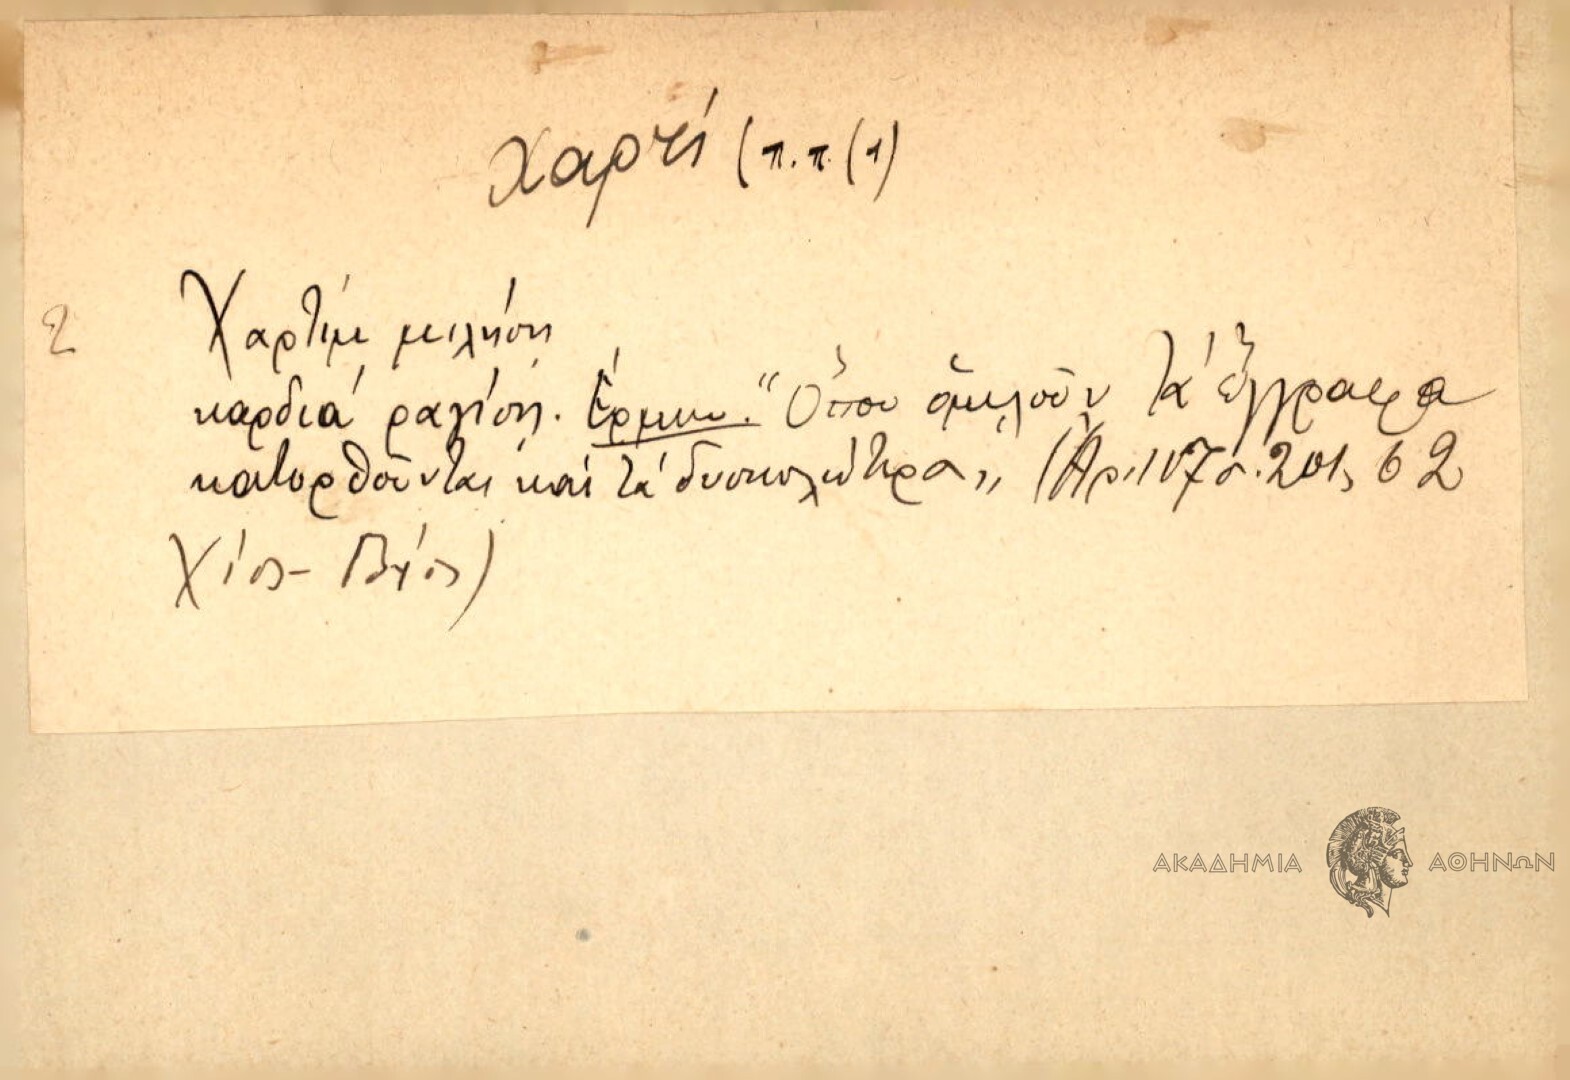 χαρτί (π.π (1)
2 Χαρτίμ μιλήση
καρδιά ραγίση. Ἑρμην. "Ὅπου ὁμιλοῦν τά ἔγγραφα
κατορθοῦνται καί τά δυσκολώτερα,, (Ἀρ. 107 σ. 201, 62
Χίος - Πυργί)
ΑΚΑΔΗΜΙΑ ΑΘΗΝΩΝ